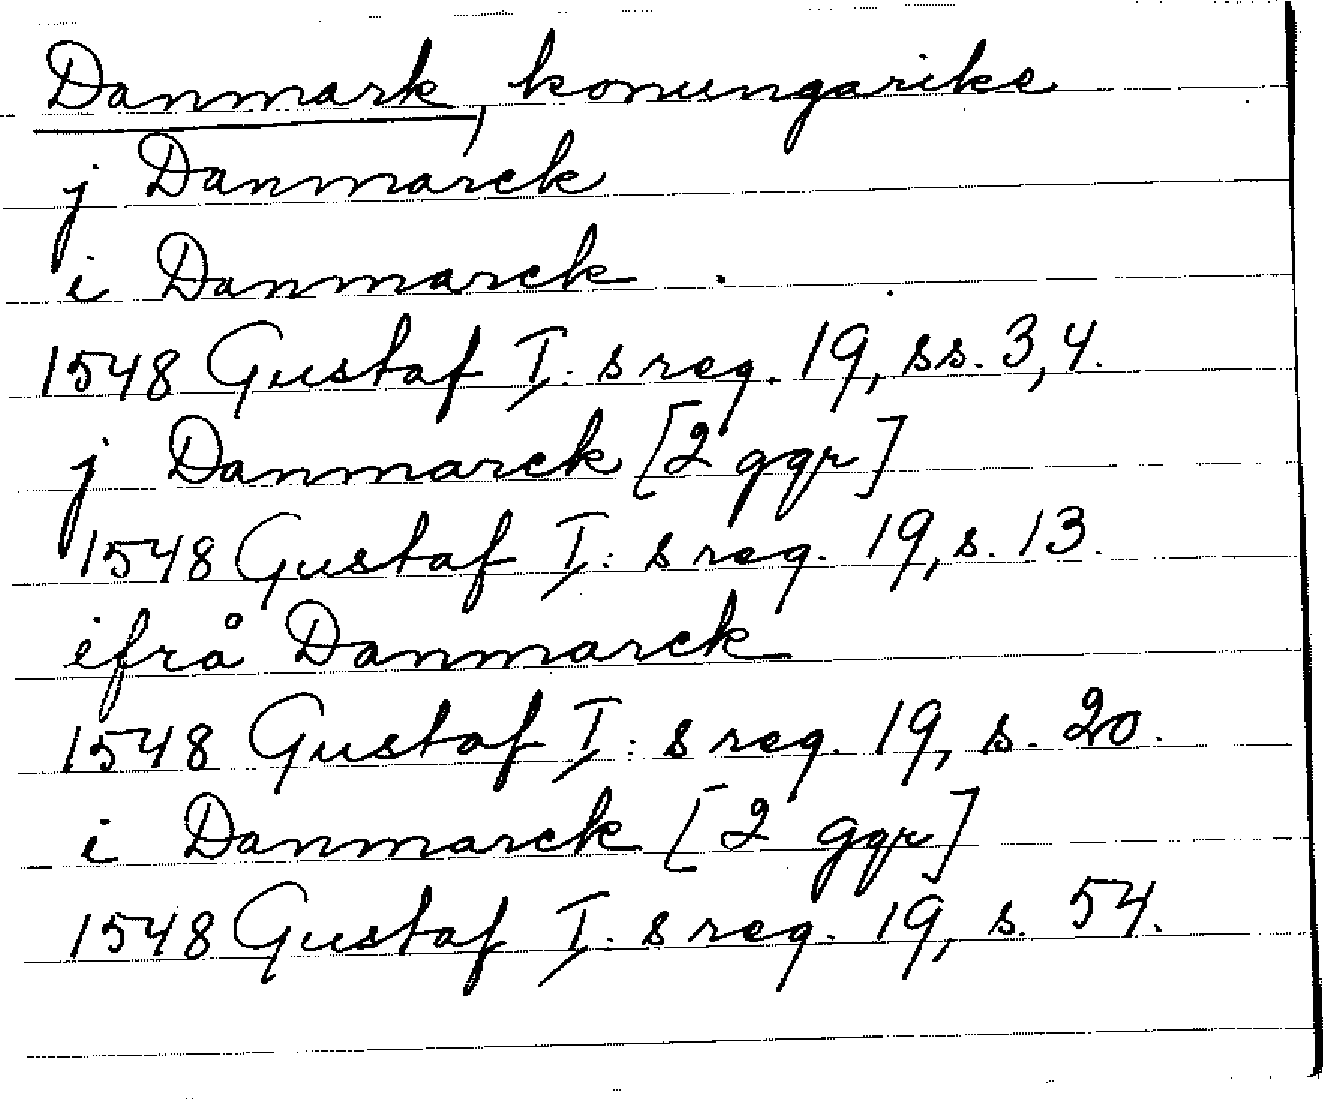 Danmark, konungarike
j Danmarck
i Danmarck
1548 Gustaf I:s reg. 19, ss. 3, 4.
j Danmarck [2 ggr]
1548 Gustaf I:s reg. 19, s. 13.
ifrå Danmarck
1548 Gustaf I:s reg. 19, s. 20.
i Danmarck [2 ggr]
1548 Gustaf I:s reg. 19, s. 54.